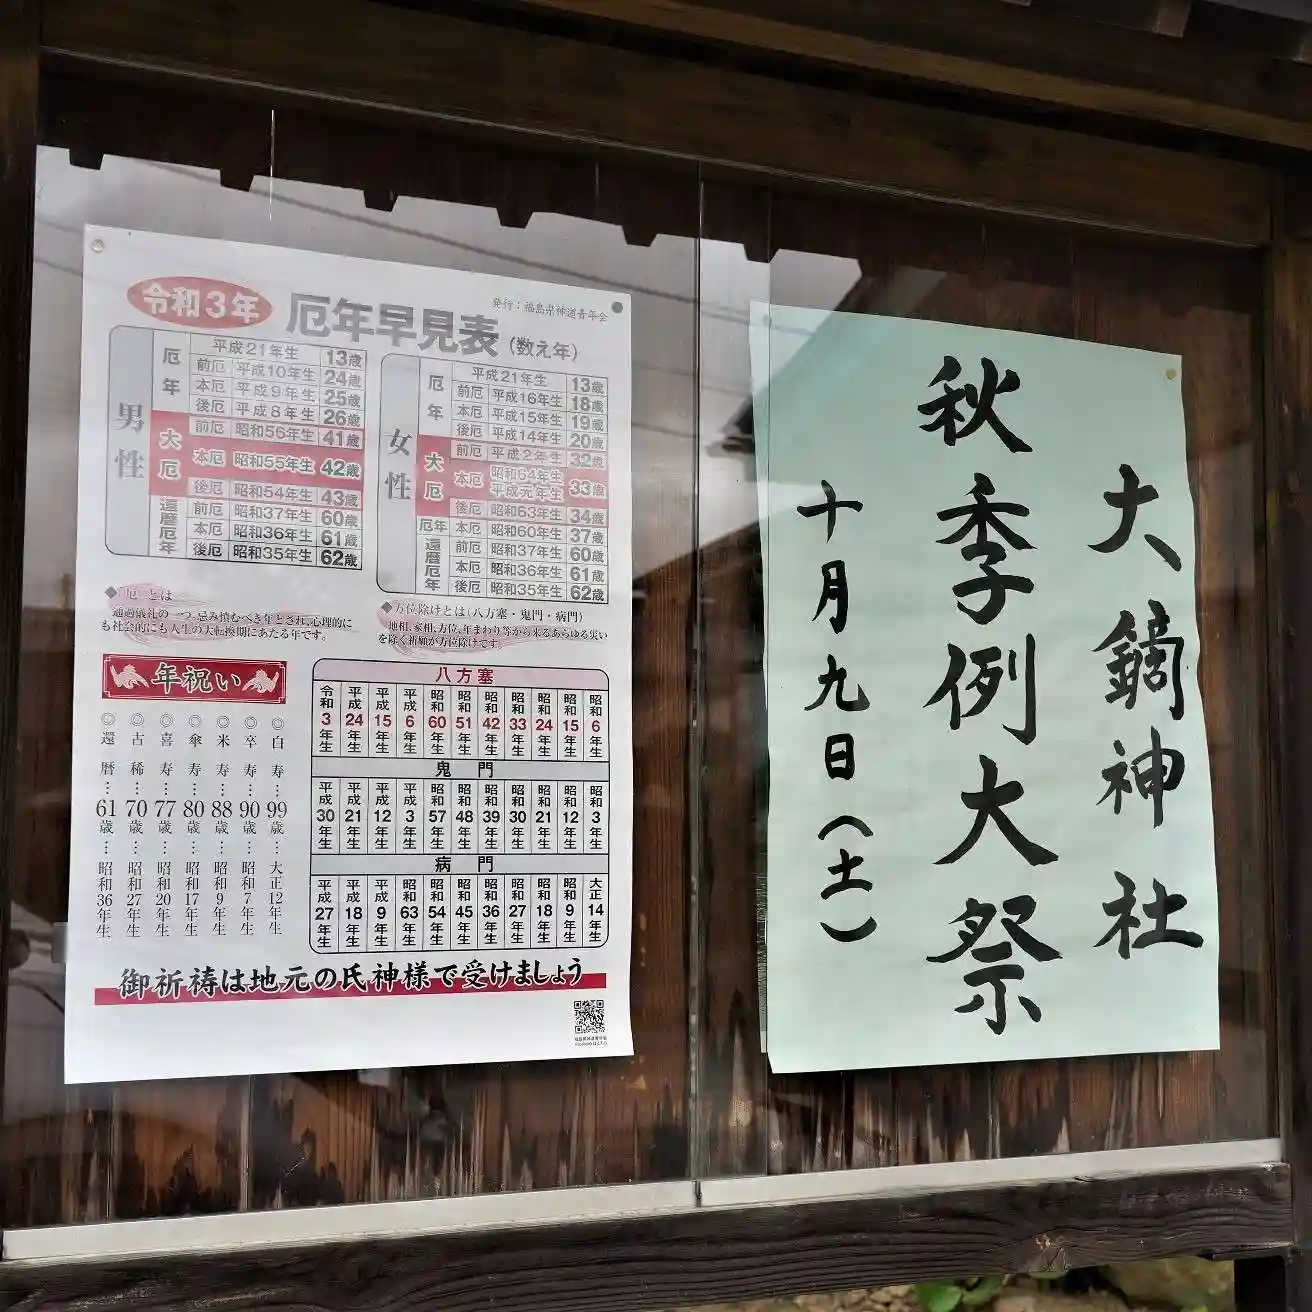 令和3年
厄年早見表(数え年)
発行:福島県神道青年会
男性
厄年
平成21年生 13歳
前厄 平成10年生 24歳
本厄 平成9年生 25歳
後厄 平成8年生 26歳
大厄
前厄 昭和56年生 41歳
本厄 昭和55年生 42歳
後厄 昭和54年生 43歳
還暦厄年
前厄 昭和37年生 60歳
本厄 昭和36年生 61歳
後厄 昭和35年生 62歳
女性
厄年
平成21年生 13歳
前厄 平成16年生 18歳
本厄 平成15年生 19歳
後厄 平成14年生 20歳
大厄
前厄 平成2年生 32歳
本厄 昭和64年生 平成元年生 33歳
後厄 昭和63年生 34歳
厄年 本厄 昭和60年生 37歳
還暦厄年
前厄 昭和37年生 60歳
本厄 昭和36年生 61歳
後厄 昭和35年生 62歳
◆「厄」とは
通過儀礼の一つ、忌み慎むべき年とされ、心理的に
も社会的にも人生の大転換期にあたる年です。
◆方位除けとは(八方塞・鬼門・病門)
地相、家相、方位、年まわり等から来るあらゆる災い
を除く祈願が方位除けです。
年祝い
◎還暦…61歳…昭和36年生
◎古稀…70歳…昭和27年生
◎喜寿…77歳…昭和20年生
◎傘寿…80歳…昭和17年生
◎米寿…88歳…昭和9年生
◎卒寿…90歳…昭和7年生
◎白寿…99歳…大正12年生
八方塞
令和3年生 平成24年生 平成15年生 平成6年生 昭和60年生 昭和51年生 昭和42年生 昭和33年生 昭和24年生 昭和15年生 昭和6年生
鬼門
平成30年生 平成21年生 平成12年生 平成3年生 昭和57年生 昭和48年生 昭和39年生 昭和30年生 昭和21年生 昭和12年生 昭和3年生
病門
平成27年生 平成18年生 平成9年生 昭和63年生 昭和54年生 昭和45年生 昭和36年生 昭和27年生 昭和18年生 昭和9年生 大正14年生
御祈祷は地元の氏神様で受けましょう
大鏑神社
秋季例大祭
十月九日(土)